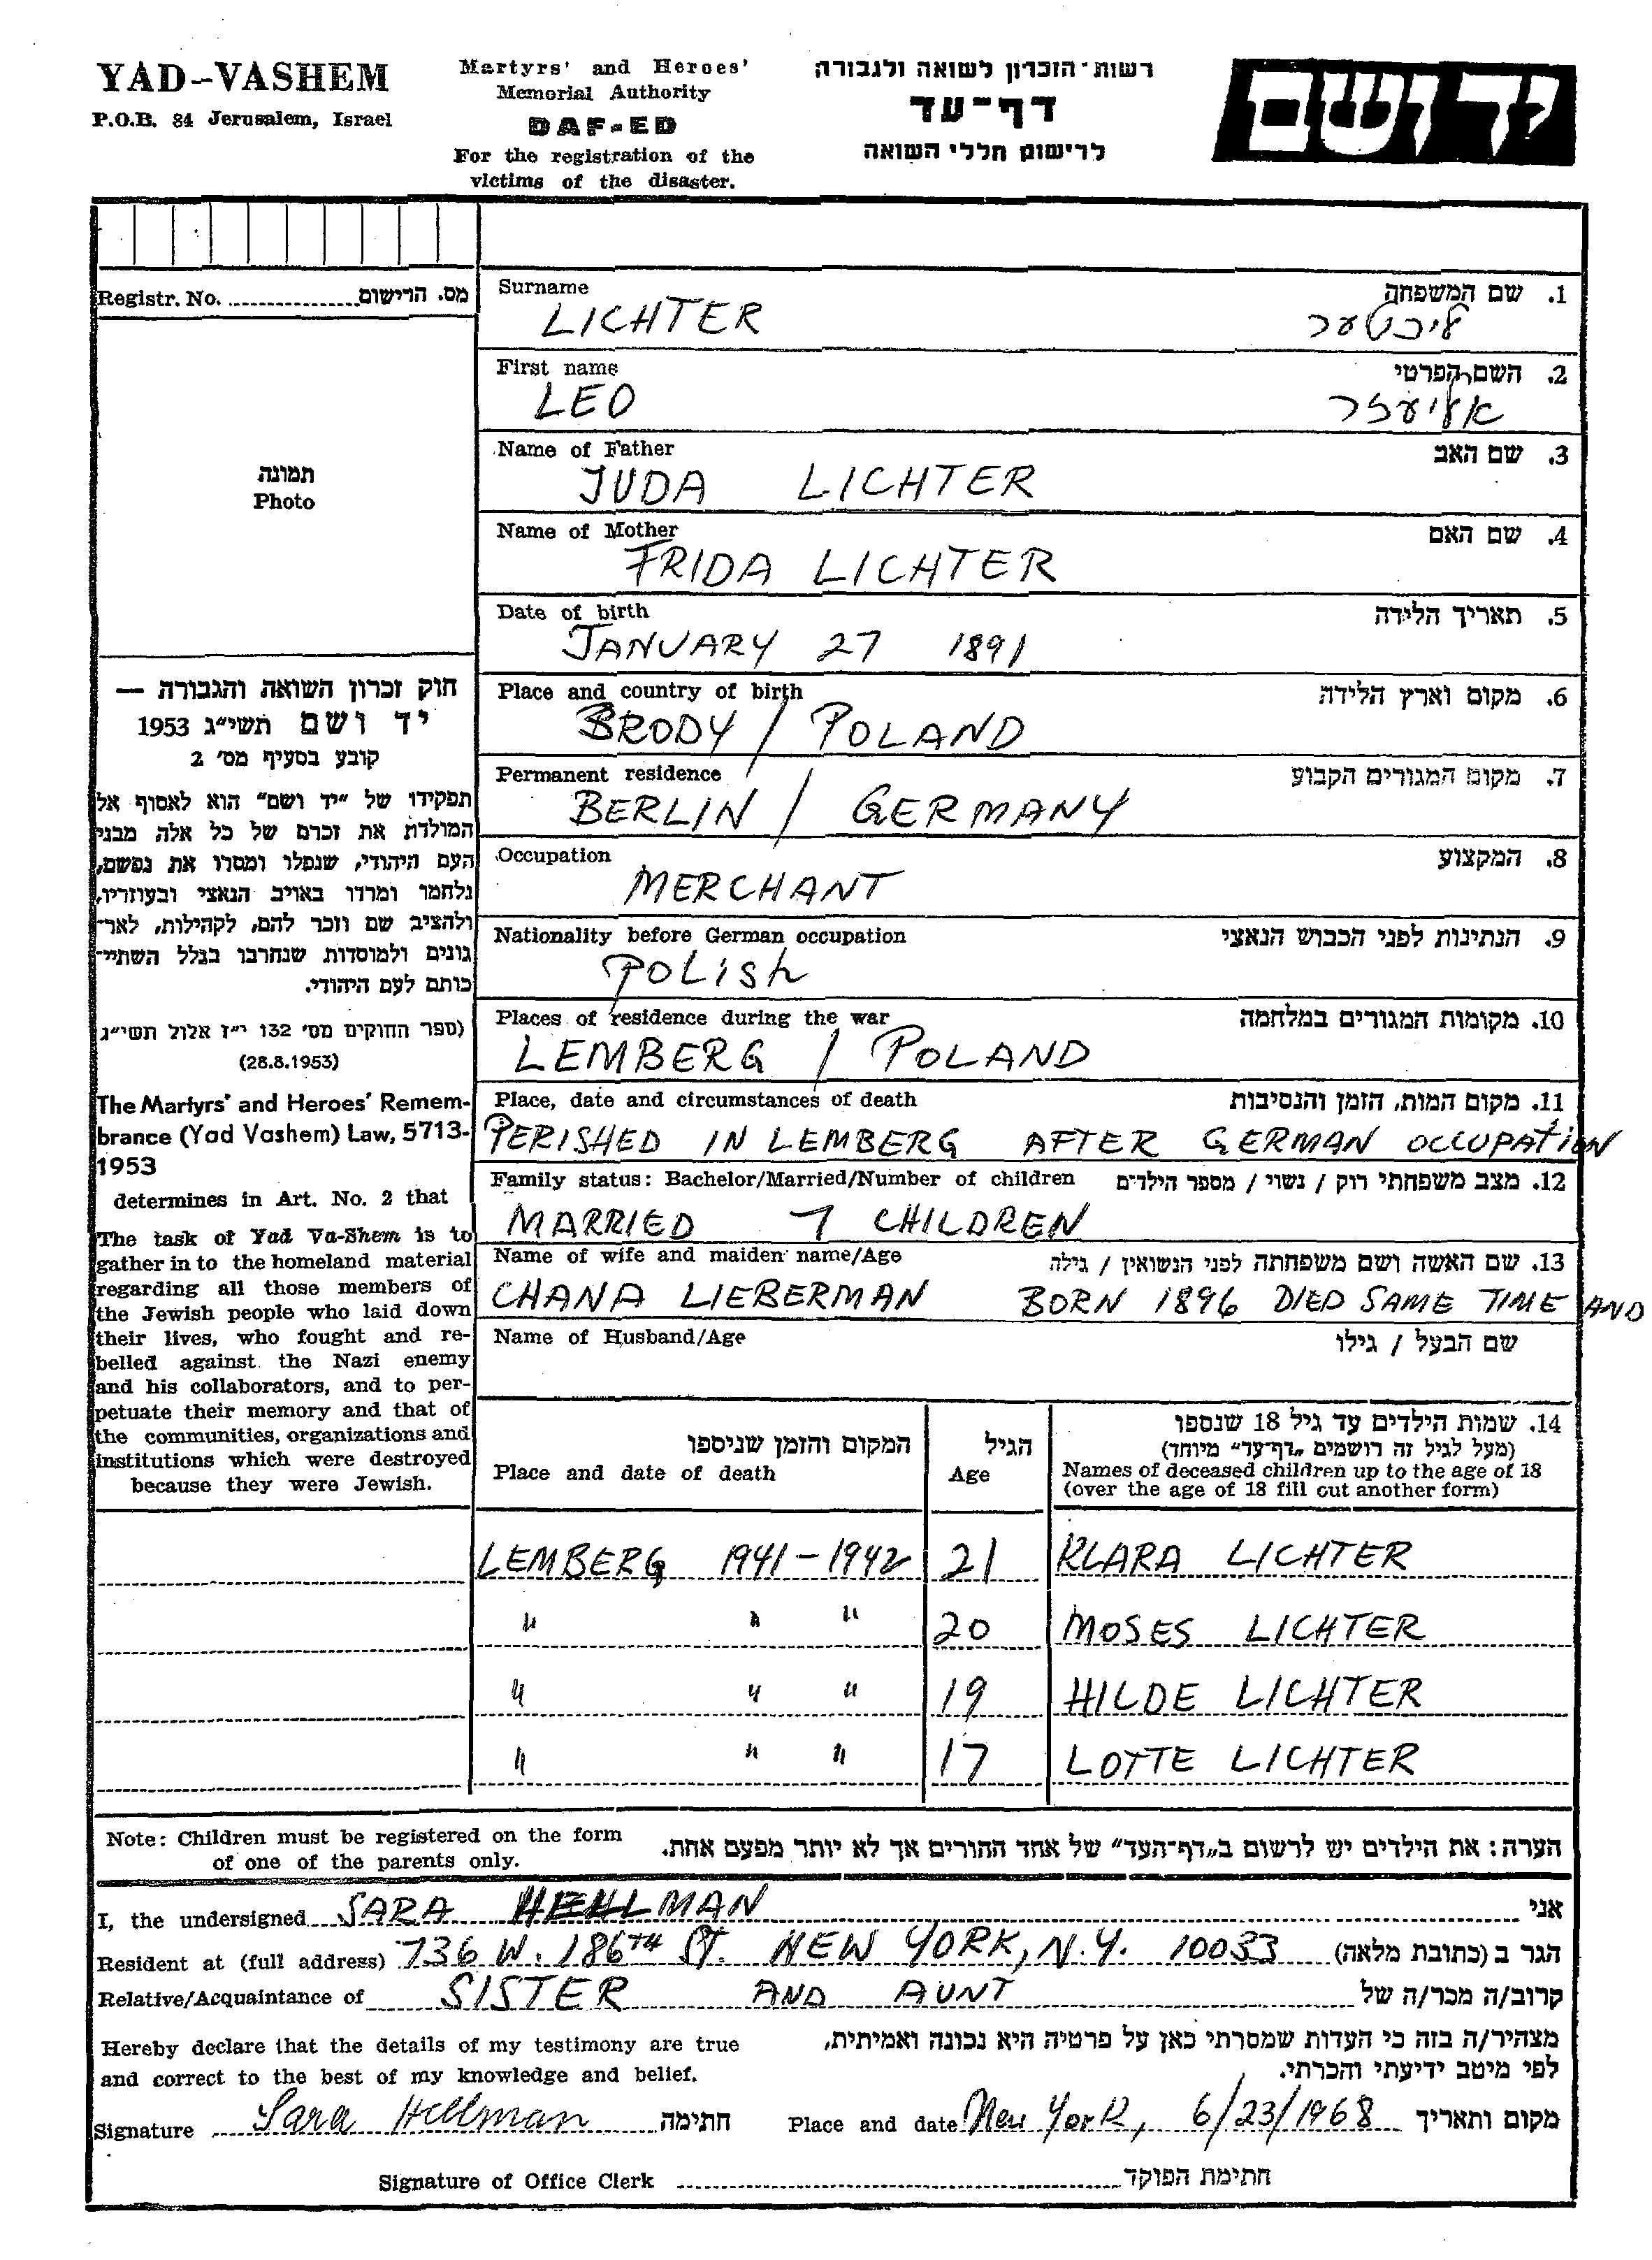 YAD-VASHEM
P.O.B. 84 Jerusalem, Israel
Martyrs' and Heroes'
Memorial Authority
DAF-ED
For the registration of the
victims of the disaster.
רשות-הזכרון לשואה ולגבורה
דף-עד
לרישום חללי השואה
יד ושם
Registr. No. מס. הרישום
תמונה
Photo
חוק זכרון השואה והגבורה —
יד ושם תשי"ג 1953
קובע בסעיף מס' 2
תפקידו של "יד ושם" הוא לאסוף אל
המולדת את זכרם של כל אלה מבני
העם היהודי, שנפלו ומסרו את נפשם,
נלחמו ומרדו באויב הנאצי ובעוזריו,
ולהציב שם וזכר להם, לקהילות, לאר-
גונים ולמוסדות שנחרבו בגלל השתיי-
כותם לעם היהודי.
(ספר החוקים מס' 132 י"ז אלול תשי"ג
(28.8.1953)
The Martyrs' and Heroes' Remem-
brance (Yad Vashem) Law, 5713-
1953
determines in Art. No. 2 that
The task of Yad Va-Shem is to
gather in to the homeland material
regarding all those members of
the Jewish people who laid down
their lives, who fought and re-
belled against the Nazi enemy
and his collaborators, and to per-
petuate their memory and that of
the communities, organizations and
institutions which were destroyed
because they were Jewish.
Surname 1. שם המשפחה
LICHTER ליכטער
First name 2. השם הפרטי
LEO אליעזר
Name of Father 3. שם האב
JUDA LICHTER
Name of Mother 4. שם האם
FRIDA LICHTER
Date of birth 5. תאריך הלידה
JANUARY 27 1891
Place and country of birth 6. מקום וארץ הלידה
BRODY / POLAND
Permanent residence 7. מקום המגורים הקבוע
BERLIN / GERMANY
Occupation 8. המקצוע
MERCHANT
Nationality before German occupation 9. הנתינות לפני הכבוש הנאצי
POLISH
Places of residence during the war 10. מקומות המגורים במלחמה
LEMBERG / POLAND
Place, date and circumstances of death 11. מקום המות, הזמן והנסיבות
PERISHED IN LEMBERG AFTER GERMAN OCCUPATION
Family status: Bachelor/Married/Number of children 12. מצב משפחתי רוק / נשוי / מספר הילדים
MARRIED 7 CHILDREN
Name of wife and maiden name/Age 13. שם האשה ושם משפחתה לפני הנשואין / גילה
CHANA LIEBERMAN BORN 1896 DIED SAME TIME AND
Name of Husband/Age שם הבעל / גילו
14. שמות הילדים עד גיל 18 שנספו
(מעל לגיל זה רושמים "דף-עד" מיוחד)
Names of deceased children up to the age of 18
(over the age of 18 fill out another form)
הגיל
Age
המקום והזמן שניספו
Place and date of death
LEMBERG 1941-1942 21 KLARA LICHTER
" " " 20 MOSES LICHTER
" " " 19 HILDE LICHTER
" " " 17 LOTTE LICHTER
Note: Children must be registered on the form
of one of the parents only.
הערה: את הילדים יש לרשום ב"דף-העד" של אחד ההורים אך לא יותר מפעם אחת.
I, the undersigned SARA HEHLMAN אני
Resident at (full address) 736 W. 186TH ST. NEW YORK, N.Y. 10033 הגר ב (כתובת מלאה)
Relative/Acquaintance of SISTER AND AUNT קרוב/ה מכר/ה של
Hereby declare that the details of my testimony are true
and correct to the best of my knowledge and belief.
מצהיר/ה בזה כי העדות שמסרתי כאן על פרטיה היא נכונה ואמיתית,
לפי מיטב ידיעתי והכרתי.
Signature Sara Hellman חתימה Place and date New York, 6/23/1968 מקום ותאריך
Signature of Office Clerk חתימת הפוקד